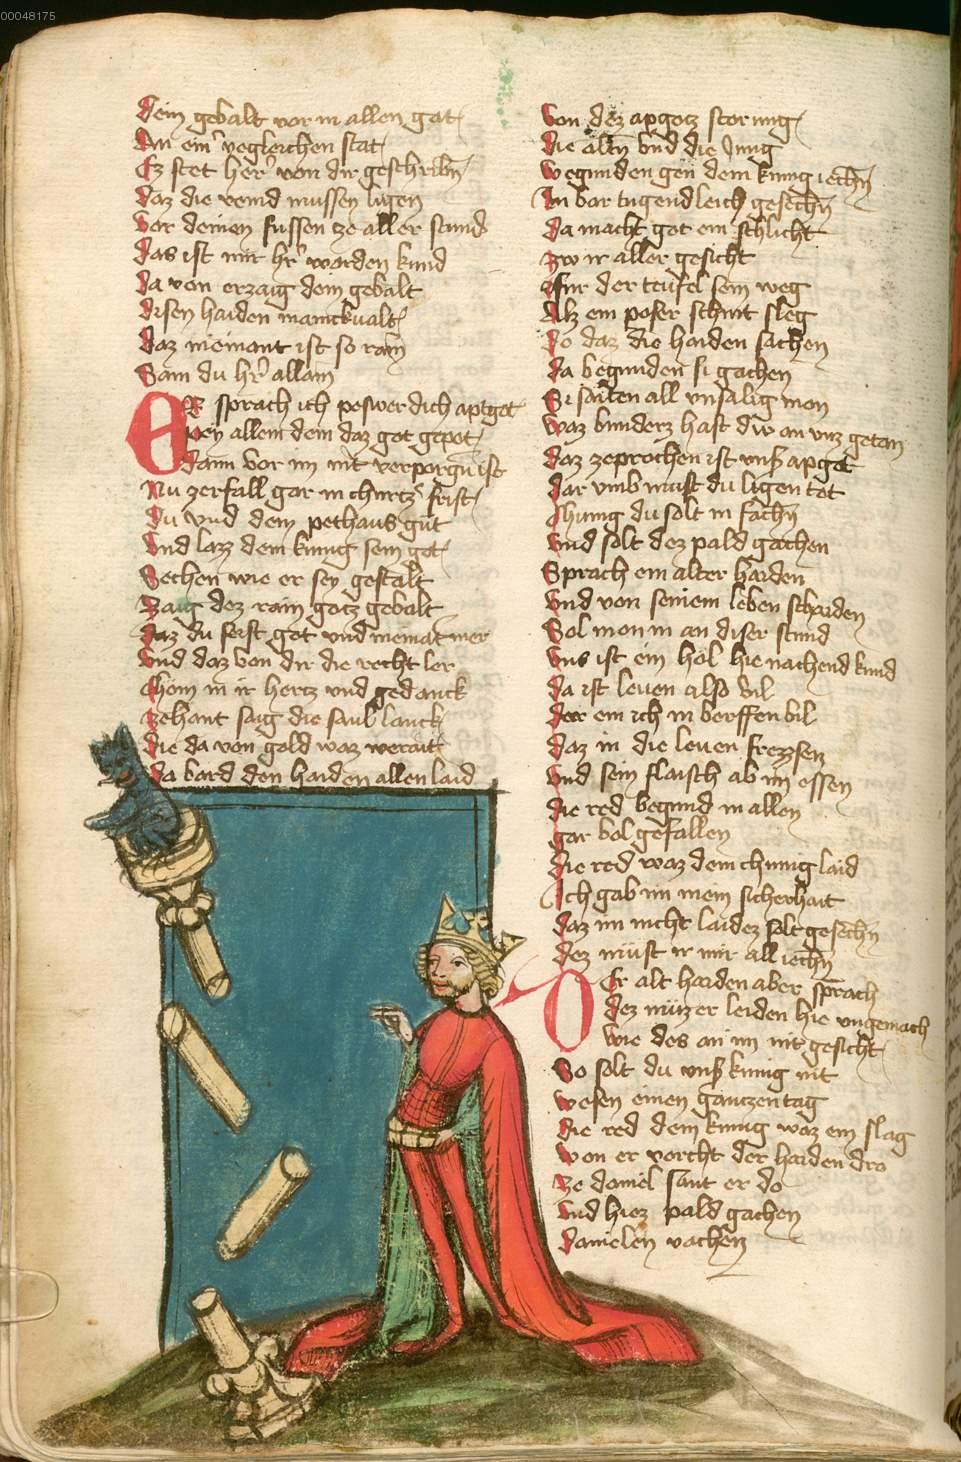 00048175
dein gebalt vor in allen got
An ein vegleichen stat
Ez stet her von dir geschribn
daz die veind mussen ligen
vor deinen fussen tze aller stund
das ist mir hr worden kund
da von erzaig dein gebalt
disen haiden manickualt
daz niemant ist so rain
Sam du hr allain
Er sprach ich peswer dich aptgot
pey allem dem daz got gepot
dann vor im nit verporgn ist
Nu zerfall gar in churtz frist
du vnd dein pethaus gut
vnd lazz dem kunig sein got
Sechen wie er sey gestalt
Zaig dez rain gotz gebalt
daz du seist got vnd niemat mer
vnd daz von dir die recht ler
chom in ir hertz vnd gedanck
zehant saig die saul lanck
die da von gold waz werait
da bard den haiden allen laid
von dez apgotz storung
die altn vnd die Jung
wegunden gen dem kunig iechn
In bar tugendleich gesechn
da macht got ein schlicht
zw ir aller gesicht
fur der teufel sein weg
Alz ein poser schnit sleg
do daz die haiden sachen
da begunden si gachen
Si saiten all vnsalig mon
waz bunderz hast dw an vnz getan
daz zeprochen ist vnser apgot
dar vmb must du ligen tot
chunig du solt in fachn
vnd solt dez pald gachen
Sprach ein alter haiden
vnd von seinem leben schaiden
Sol mon in an diser stund
vns ist ein hol hie nachend kund
da ist leuen also vil
dar ein ich in berffen bil
daz in die leuen frezzen
vnd sein flaisch ab im essen
die red begund in allen
gar bol gefallen
die red waz dem chunig laid
Ich gab im mein sicherhait
daz im nicht laidez solt gesechn
dez müst ir mir all iechn
Der alt haiden aber sprach
dez müzer leiden hie vngemach
wie des an im nit gesicht
So solt du vnser kunig nit
wesen einen gantzen tag
die red dem kunig waz ein slag
von er vorcht der haiden dro
ze daniel sant er do
vnd hiez pald gachen
danielen vachen